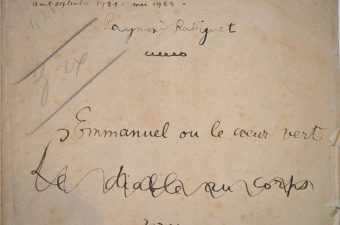 Aout septembre 1921 - mai 1922 -
Raymond Radiguet
Emmanuel ou le coeur vert
Le diable au corps